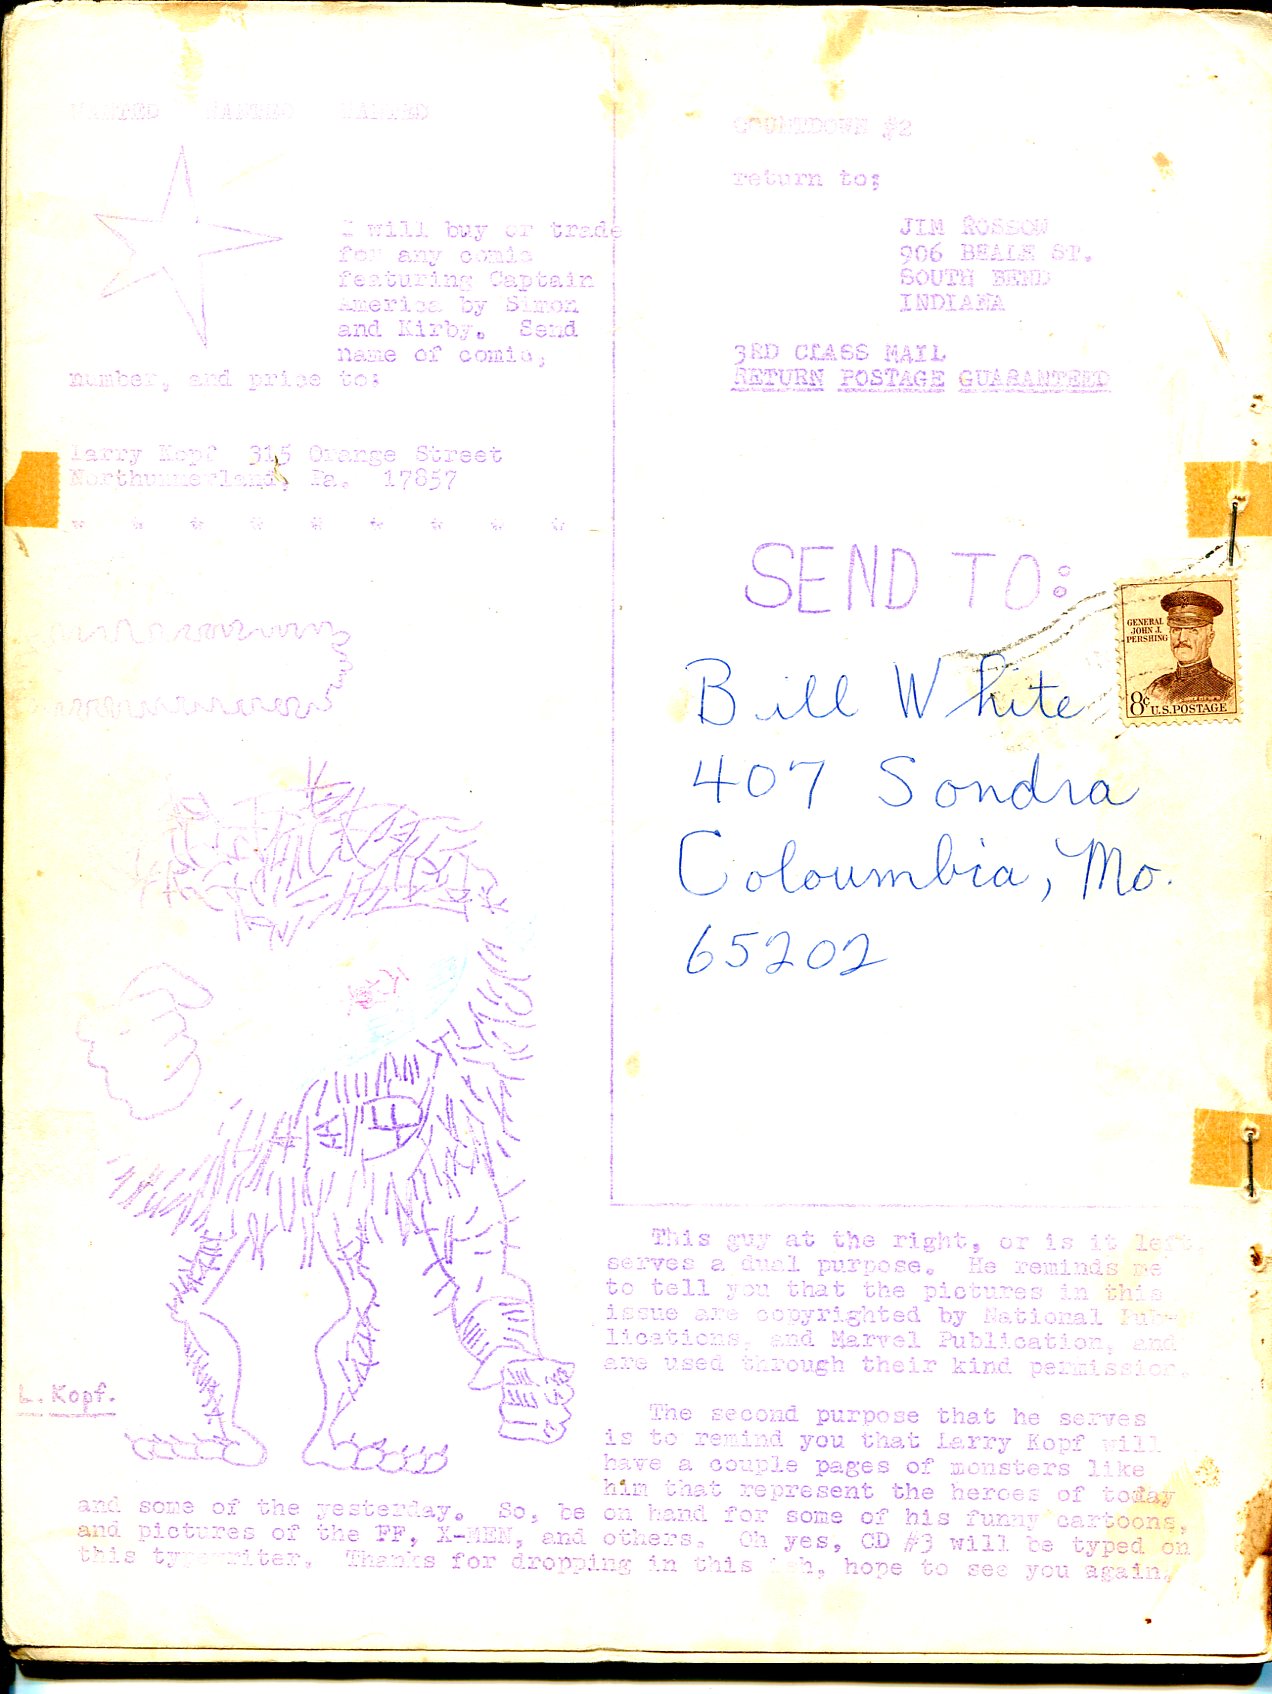 WANTED WANTED WANTED
I will buy or trade
for any comic
featuring Captain
America by Simon
and Kirby. Send
name of comic,
number, and price to:
Larry Kopf 315 Orange Street
Northummerland, Pa. 17857
* * * * * * * * *
L. Kopf.
COUNTDOWN #2
return to;
JIM ROSSOW
906 BEALE ST.
SOUTH BEND
INDIANA
3RD CLASS MAIL
RETURN POSTAGE GUARANTEED
SEND TO:
GENERAL
JOHN J.
PERSHING
8¢ U.S. POSTAGE
Bill White
407 Sondra
Coloumbia, Mo.
65202
This guy at the right, or is it left,
serves a dual purpose. He reminds me
to tell you that the pictures in this
issue are copyrighted by National Pub-
lications, and Marvel Publication, and
are used through their kind permission.
The second purpose that he serves
is to remind you that Larry Kopf will
have a couple pages of monsters like
him that represent the heroes of today
and some of the yesterday. So, be on hand for some of his funny cartoons,
and pictures of the FF, X-MEN, and others. Oh yes, CD #3 will be typed on
this typewriter. Thanks for dropping in this ish, hope to see you again.